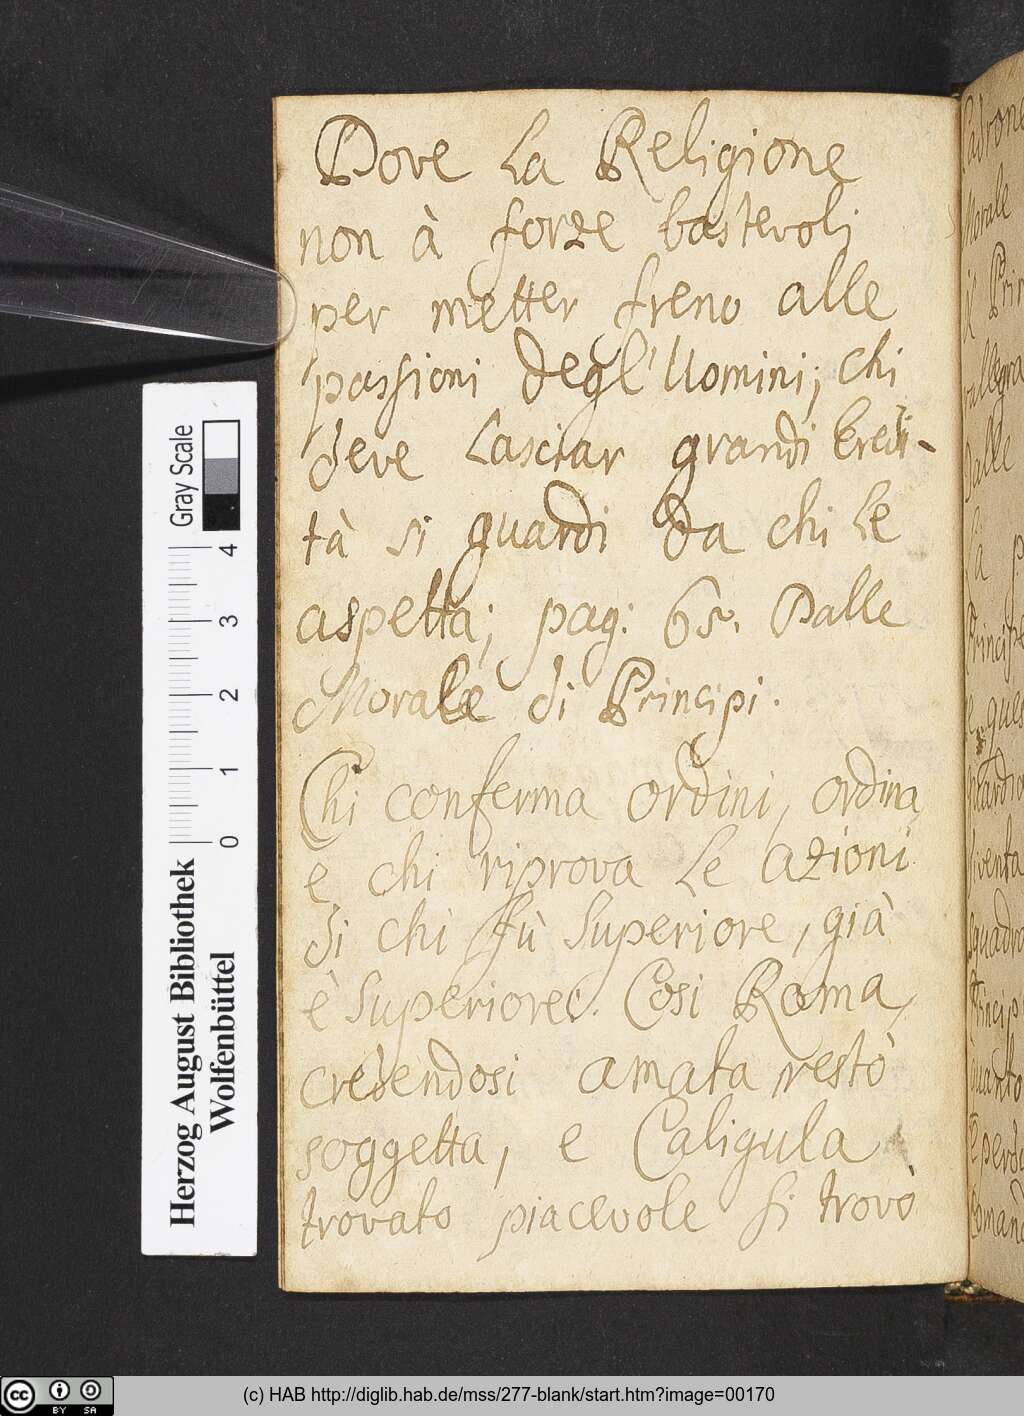 Dove la Religione
non à forze bastevoli
per metter freno alle
passioni degl'Uomini; chi
deve lasciar grandi Eredi-
tà si guardi da chi le
aspetta; pag: 65. Dalle
Morale di Principi.
Chi conferma ordini, ordina,
e chi riprova le azioni
di chi fù Superiore, già
è Superiore. Cosi Roma,
credendosi amata restò
soggetta, e Caligula
trovato piacevole si trovò
Morale
il Prin
Dalle
la
Gray Scale
4
3
2
1
0
Herzog August Bibliothek
Wolfenbüttel
cc BY SA
(c) HAB http://diglib.hab.de/mss/277-blank/start.htm?image=00170